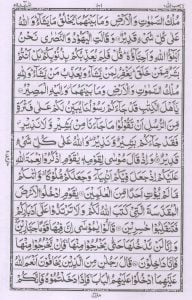 مُلْكُ السَّمٰوٰتِ وَالْاَرْضِ وَمَا بَيْنَهُمَا يَخْلُقُ مَا يَشَآءُ وَاللّٰهُ
عَلٰى كُلِّ شَىْءٍ قَدِيْرٌ وَقَالَتِ الْيَهُوْدُ وَالنَّصٰرٰى نَحْنُ
اَبْنٰٓؤُا اللّٰهِ وَاَحِبَّآؤُهٗ قُلْ فَلِمَ يُعَذِّبُكُمْ بِذُنُوْبِكُمْ بَلْ اَنْتُمْ
بَشَرٌ مِّمَّنْ خَلَقَ يَغْفِرُ لِمَنْ يَّشَآءُ وَيُعَذِّبُ مَنْ يَّشَآءُ وَلِلّٰهِ
مُلْكُ السَّمٰوٰتِ وَالْاَرْضِ وَمَا بَيْنَهُمَا وَاِلَيْهِ الْمَصِيْرُ
يٰٓاَهْلَ الْكِتٰبِ قَدْ جَآءَكُمْ رَسُوْلُنَا يُبَيِّنُ لَكُمْ عَلٰى فَتْرَةٍ
مِّنَ الرُّسُلِ اَنْ تَقُوْلُوْا مَا جَآءَنَا مِنْۢ بَشِيْرٍ وَّلَا نَذِيْرٍ
فَقَدْ جَآءَكُمْ بَشِيْرٌ وَّنَذِيْرٌ وَاللّٰهُ عَلٰى كُلِّ شَىْءٍ
قَدِيْرٌ وَاِذْ قَالَ مُوْسٰى لِقَوْمِهٖ يٰقَوْمِ اذْكُرُوْا نِعْمَةَ اللّٰهِ
عَلَيْكُمْ اِذْ جَعَلَ فِيْكُمْ اَنْۢبِيَآءَ وَجَعَلَكُمْ مُّلُوْكًا وَّاٰتٰىكُمْ
مَّا لَمْ يُؤْتِ اَحَدًا مِّنَ الْعٰلَمِيْنَ يٰقَوْمِ ادْخُلُوا الْاَرْضَ
الْمُقَدَّسَةَ الَّتِىْ كَتَبَ اللّٰهُ لَكُمْ وَلَا تَرْتَدُّوْا عَلٰٓى اَدْبَارِكُمْ
فَتَنْقَلِبُوْا خٰسِرِيْنَ قَالُوْا يٰمُوْسٰٓى اِنَّ فِيْهَا قَوْمًا جَبَّارِيْنَ
وَاِنَّا لَنْ نَّدْخُلَهَا حَتّٰى يَخْرُجُوْا مِنْهَا فَاِنْ يَّخْرُجُوْا مِنْهَا
فَاِنَّا دٰخِلُوْنَ قَالَ رَجُلٰنِ مِنَ الَّذِيْنَ يَخَافُوْنَ اَنْعَمَ اللّٰهُ
عَلَيْهِمَا ادْخُلُوْا عَلَيْهِمُ الْبَابَ فَاِذَا دَخَلْتُمُوْهُ فَاِنَّكُمْ